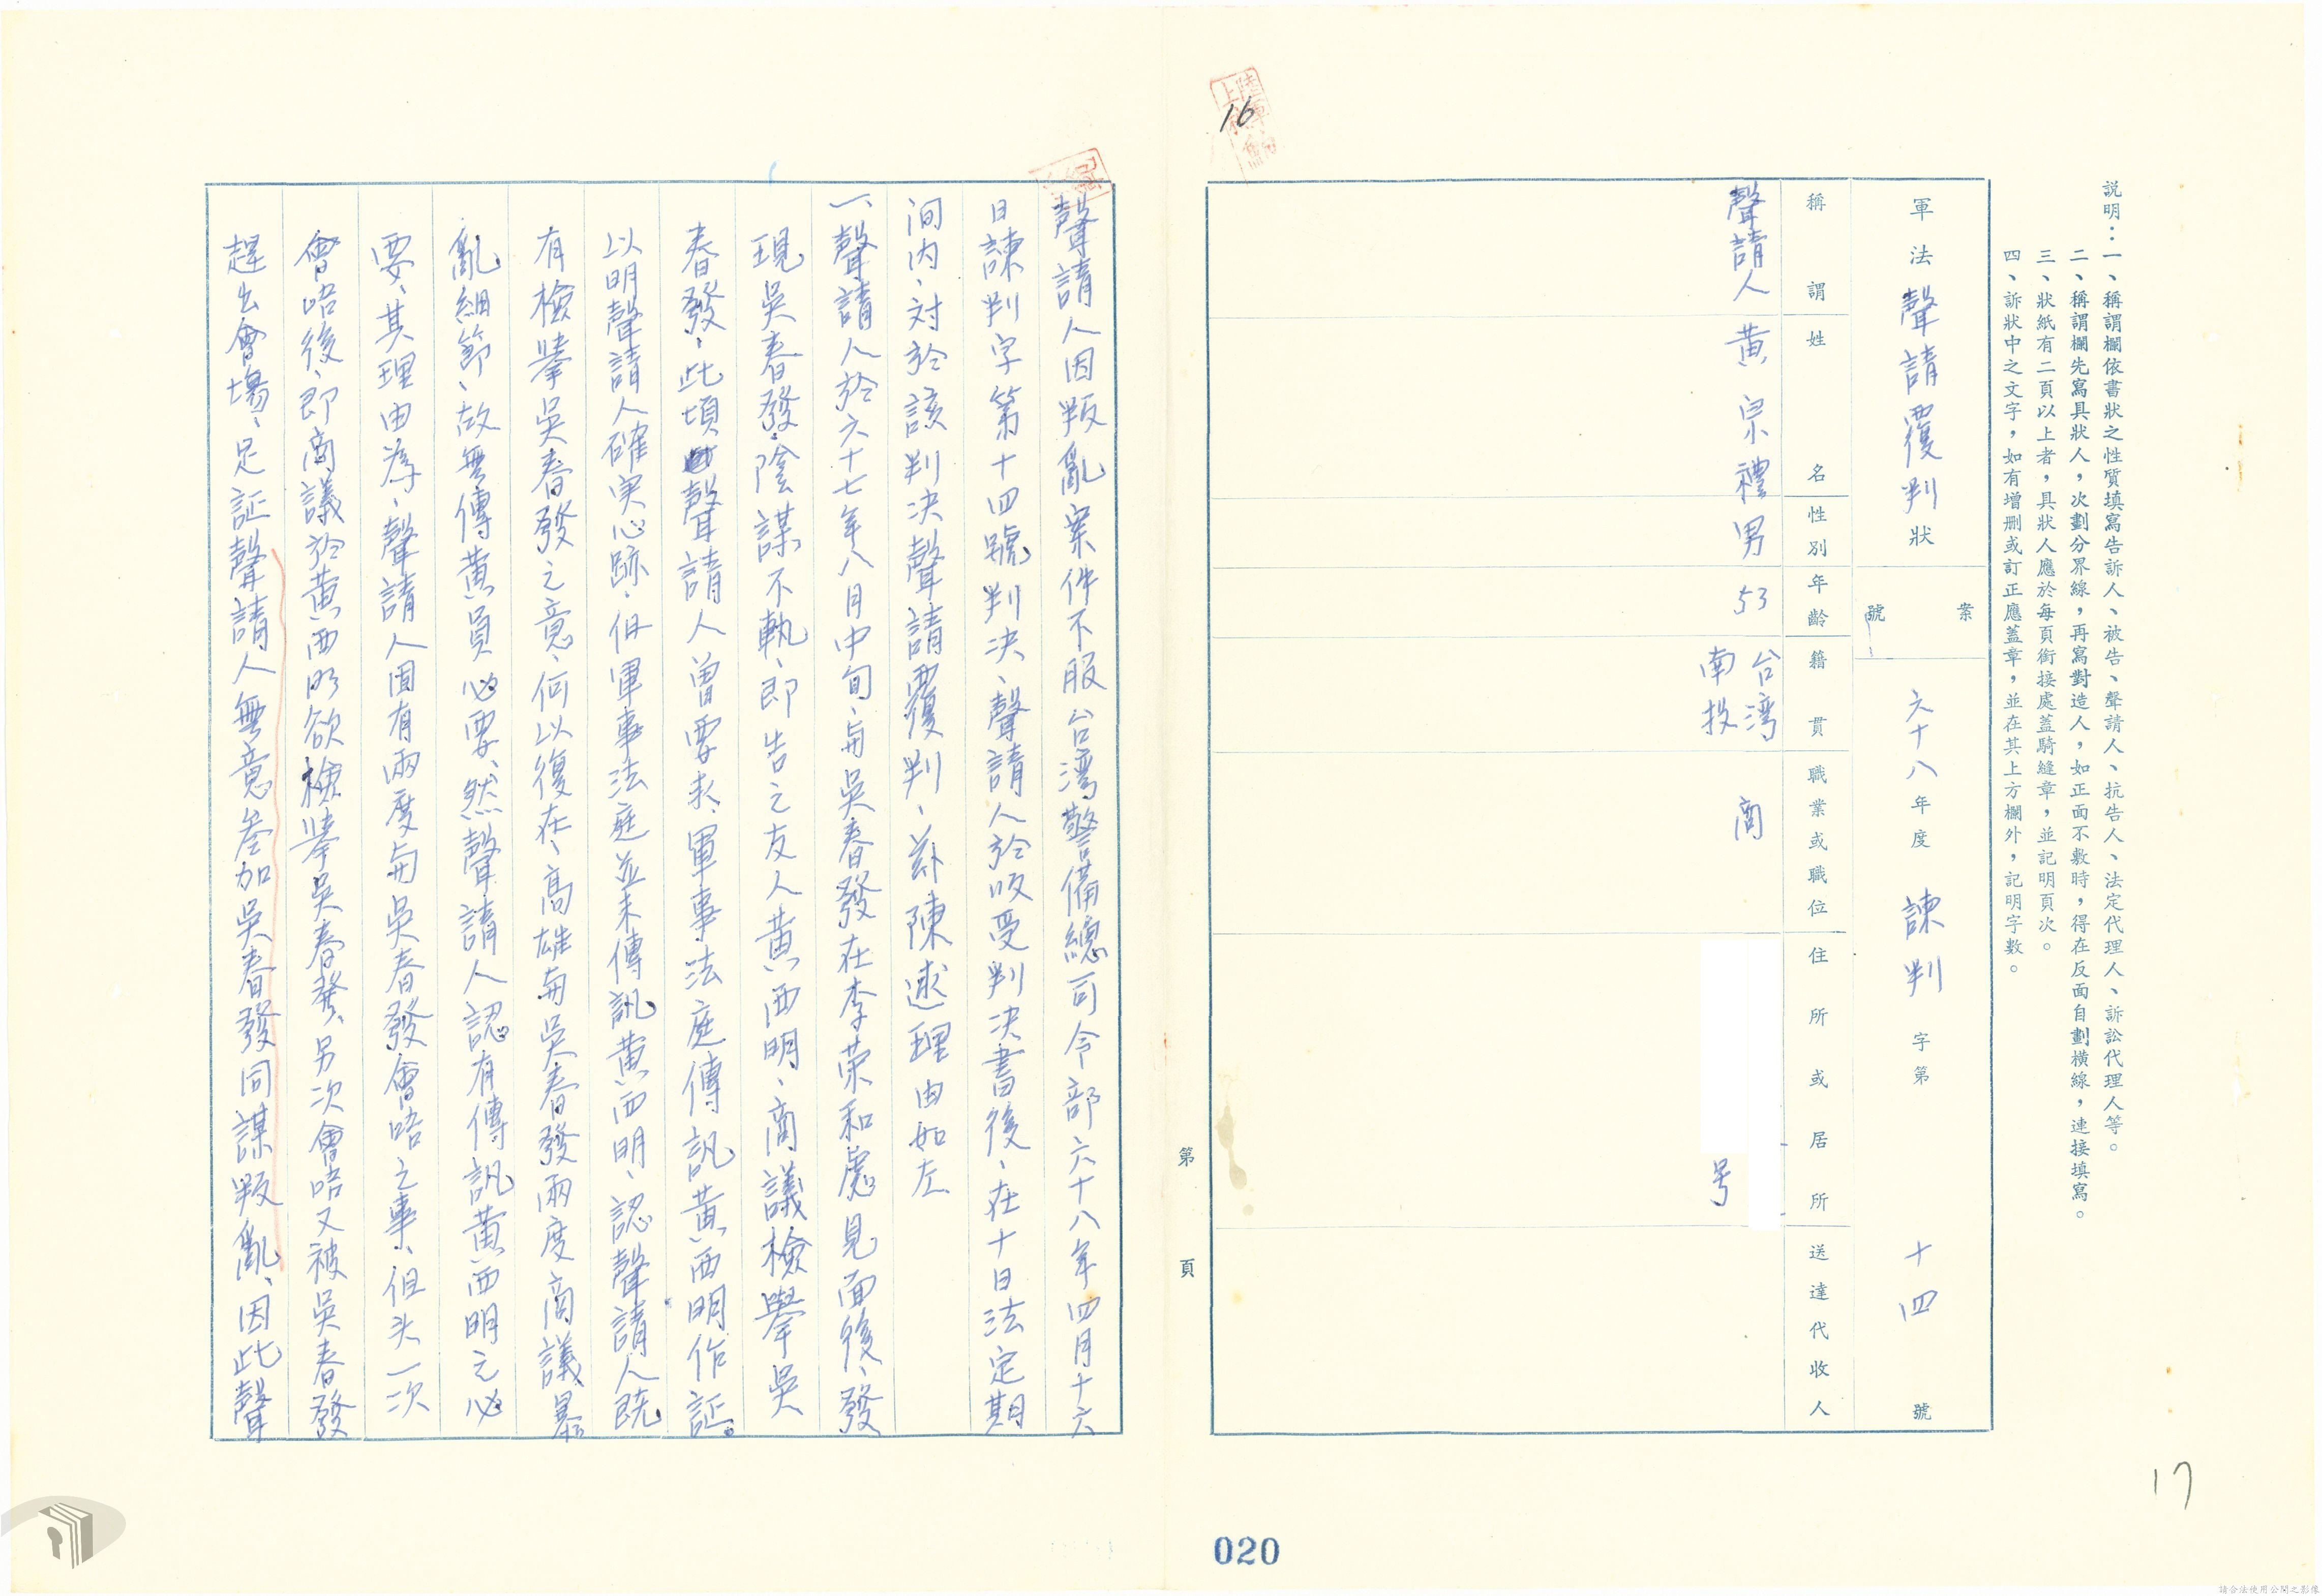 説明：一、稱謂欄依書狀之性質填寫告訴人、被告、聲請人、抗告人、法定代理人、訴訟代理人等。
二、稱謂欄先寫具狀人，次劃分界線，再寫對造人，如正面不敷時，得在反面自劃橫線，連接填寫。
三、狀紙有二頁以上者，具狀人應於每頁銜接處蓋騎縫章，並記明頁次。
四、訴狀中之文字，如有增刪或訂正應蓋章，並在其上方欄外，記明字數。
軍法聲請覆判狀
案號
六十八年度諫判字第十四號
稱謂 姓名 性別 年齡 籍貫 職業或職位 住所或居所 送達代收人
聲請人 黃宗禮 男 53 台湾南投 商 号
第 頁
16
聲請人因叛亂案件不服台湾警備總司令部六十八年四月十六
日諫判字第十四號判決、聲請人於收受判決書後、在十日法定期
间内、対於該判決聲請覆判、茲陳述理由如左
一、聲請人於六十七年八月中旬、与吳春發在李荣和處見面後、發
現吳春發、陰謀不軌、即告之友人黃西明、商議檢舉吳
春發、此項聲請人曾要求、軍事法庭傳訊黃西明作証。
以明聲請人確実心跡、但軍事法庭並未傳訊黃西明、認聲請人既
有檢舉吳春發之意、何以復在、高雄与吳春發兩度商議暴
亂細節、故無傳黃員必要、然聲請人認有傳訊黃西明之必
要、其理由為、聲請人固有兩度与吳春發會唔之事、但头一次
會唔後、即商議於黃西明欲檢舉吳春發、另次會唔又被吳春發
趕出會場、足証聲請人無意參加吳春發同謀叛亂、因此聲
17
020
請合法使用公開之影像